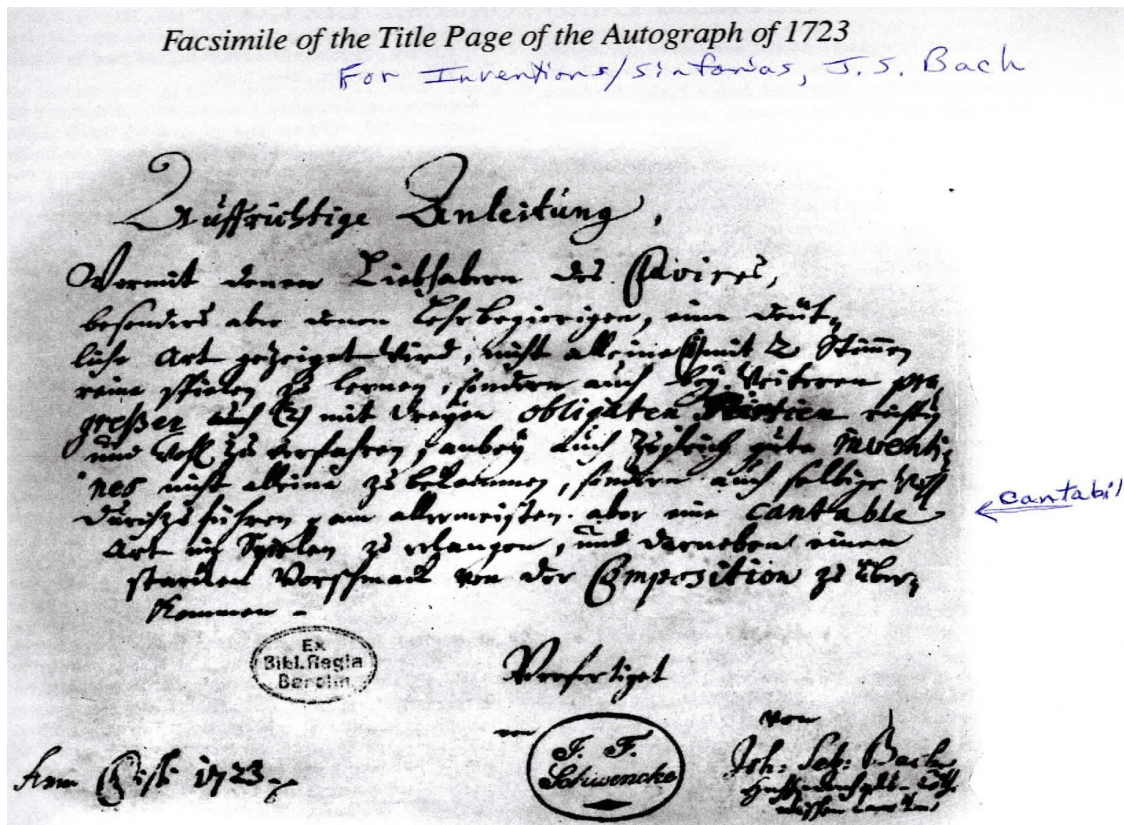 Facsimile of the Title Page of the Autograph of 1723
For Inventions/sinfonias, J.S. Bach
Auffrichtige Anleitung,
Wormit denen Liebhabern des Clavires,
besonders aber denen Lehrbegierigen, eine deüt-
liche Art gezeiget wird, nicht alleine (1) mit 2 Stimmen
reine spielen zu lernen, sondern auch bey weiteren pro-
greßen auch (2) mit dreyen obligaten Partien richtig
und wohl zu verfahren, anbey auch zugleich gute inventi-
ones nicht alleine zu bekommen, sondern auch selbige wohl
durchzuführen, am allermeisten aber eine cantable
cantabil
Art im Spielen zu erlangen, und darneben einen
starcken Vorschmack von der Composition zu über-
kommen.
Ex
Bibl. Regia
Berolin.
Verfertiget
von
J. F.
Schwencke
Joh: Seb: Bach
Anno Christi 1723.